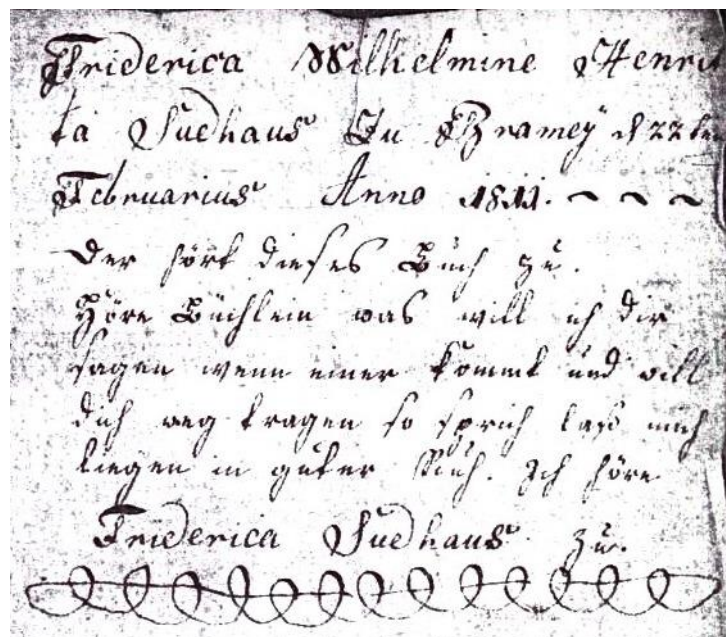 Friderica Wilhelmine Henri
ta Sudhaus Zu Bramey d 22te
Februarius Anno 1811.
Der hört dieses Buch zu.
Höre Büchlein was will ich dir
sagen wenn einer kommt und will
dich weg tragen so sprich lass mich
liegen in guter Ruh. Ich höre
Friderica Sudhaus zu.